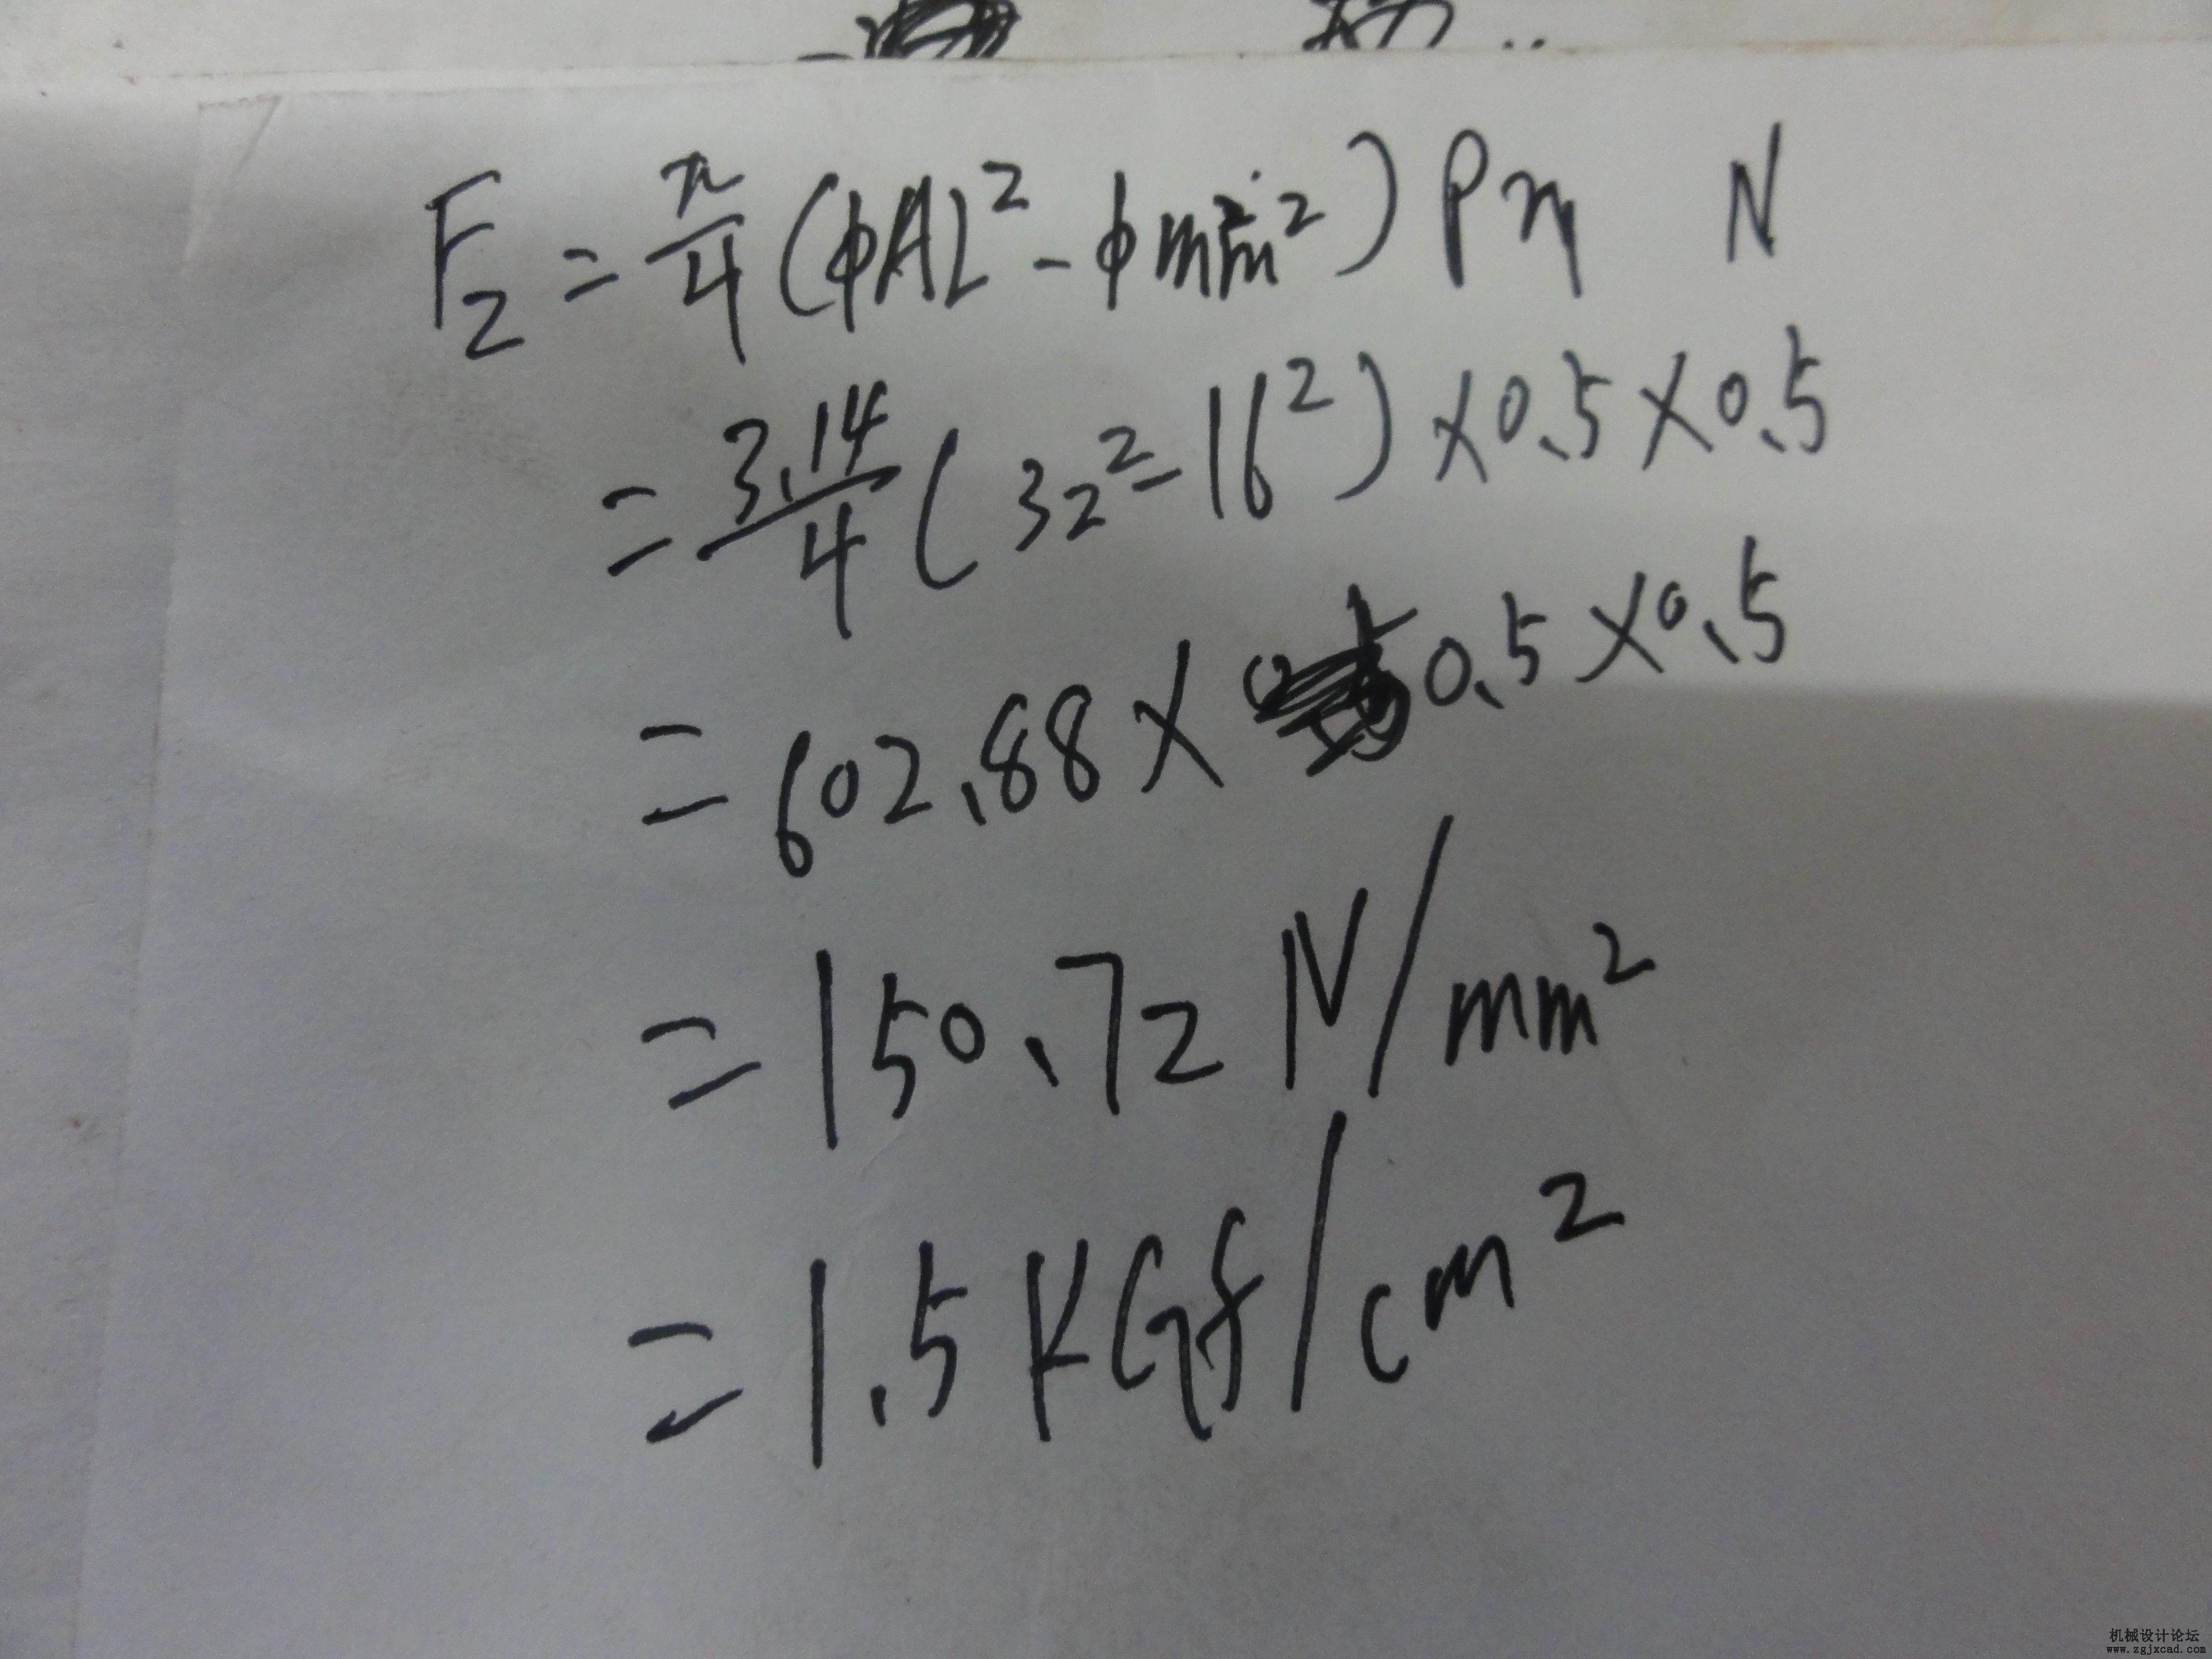 F₂ = π/4 (ϕAL² - ϕmm²) Pη N
= 3.14/4 (32² - 16²) × 0.5 × 0.5
= 602.88 × 0.5 × 0.5
= 150.72 N/mm²
= 1.5 KGf/cm²
机械设计论坛
www.zgjxcad.com